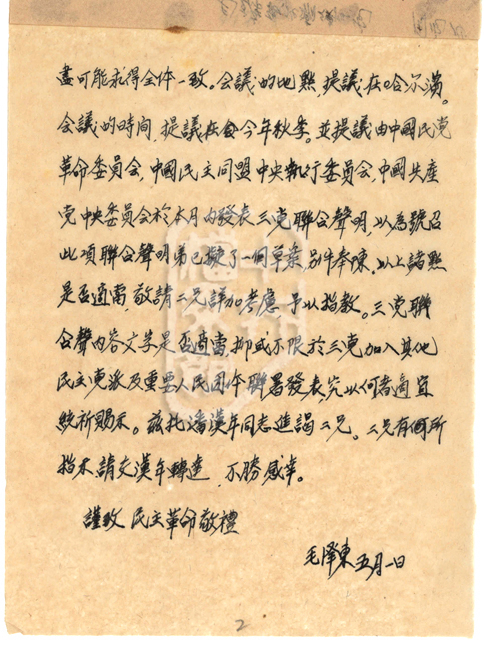 盡可能求得全体一致。会議的地點，提議在哈尔濱。
会議的時间，提議在今年秋季。並提議由中國民党
革命委員会，中國民主同盟中央執行委員会，中國共産
党中央委員会於本月内發表三党聯合聲明，以為號召
此項聯合聲明弟已擬了一個草案，另件奉陳。以上諸點
是否適當，敬請二兄詳加考慮予以指教。三党聯
合聲内容文字是否適當，抑或不限於三党加入其他
民主党派及重要人民团体聯署發表究以何者適宜
統祈賜示。兹托潘漢年同志進謁二兄。二兄有何所
指示，請交漢年轉達，不勝感幸。
謹致 民主革命敬禮
毛澤東 五月一日
2